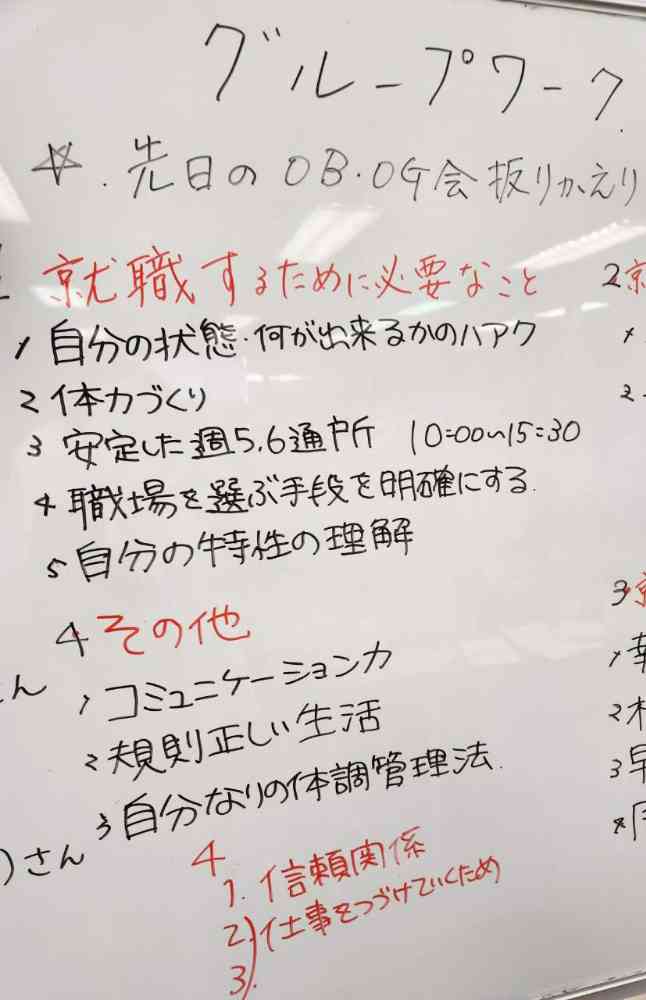 グループワーク
☆.先日のOB.OG会振りかえり
就職するために必要なこと
1 自分の状態・何が出来るかのハアク
2 体力づくり
3 安定した週5.6通所 10:00~15:30
4 職場を選ぶ手段を明確にする.
5 自分の特性の理解
4 その他
1 コミュニケーション力
2 規則正しい生活
3 自分なりの体調管理法.
4
1. 信頼関係
2) 仕事をつづけていくため
3.
さん
2
3
1
2
3 早